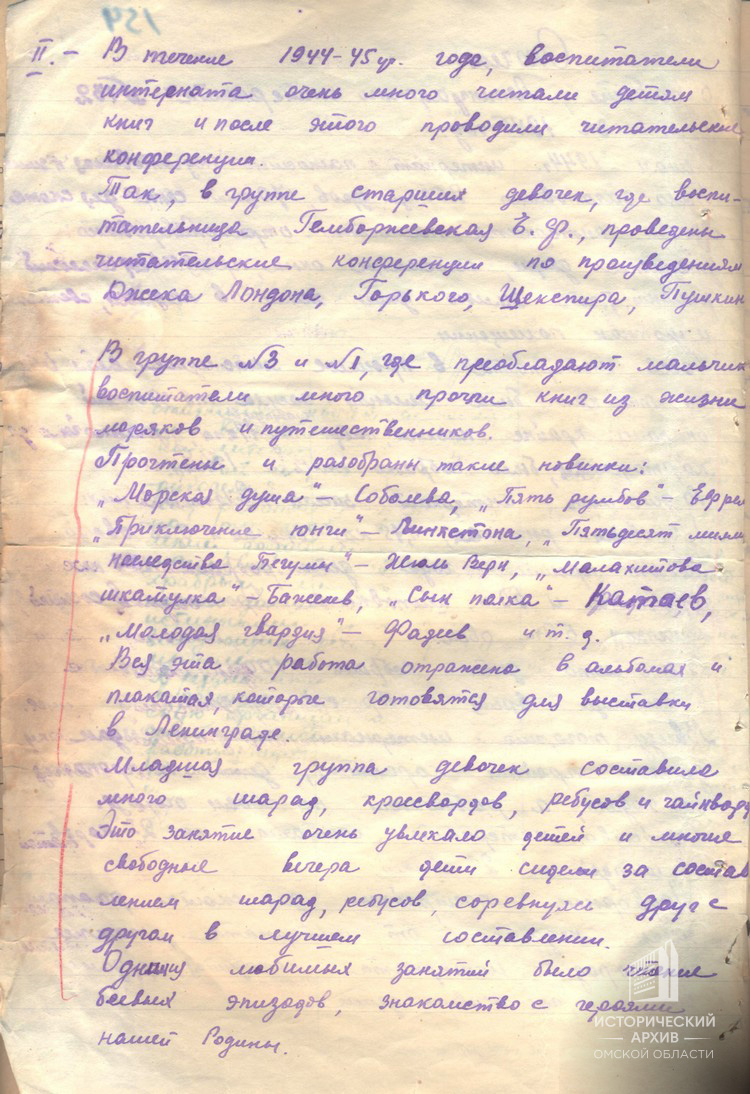 154
II. – В течение 1944-45 уч. года, воспитатели
интерната очень много читали детям
книг и после этого проводили читательские
конференции.
Так, в группе старших девочек, где воспи-
тательница Гемборжевская Е. Ф., проведены
читательские конференции по произведениям
Джека Лондона, Горького, Шекспира, Пушкин
В группе №3 и №1, где преобладают мальчик
воспитатели много прочли книг из жизни
моряков и путешественников.
Прочтены и разобраны такие новинки:
„Морская душа" – Соболева, „Пять румбов" –
„Приключение юнги" – „Пятьдесят милли
наследства Бегумы" – Жюль Верн, „Малахитова
шкатулка" – Бажев, „Сын полка" – Катаев,
„Молодая гвардия" – Фадеев и т. д.
Вся эта работа отражена в альбомах и
плакатах, которые готовятся для выставки
в Ленинграде.
Младшая группа девочек составила
много шарад, кроссвордов, ребусов и чайнворд
Это занятие очень увлекало детей и многие
свободные вечера дети сидели за состав
лением шарад, ребусов, соревнуясь друг с
другом в лучшем составлении.
Одним из любимых занятий было чтение
боевых эпизодов, знакомство с героями
нашей Родины.
ИСТОРИЧЕСКИЙ
АРХИВ
ОМСКОЙ ОБЛАСТИ